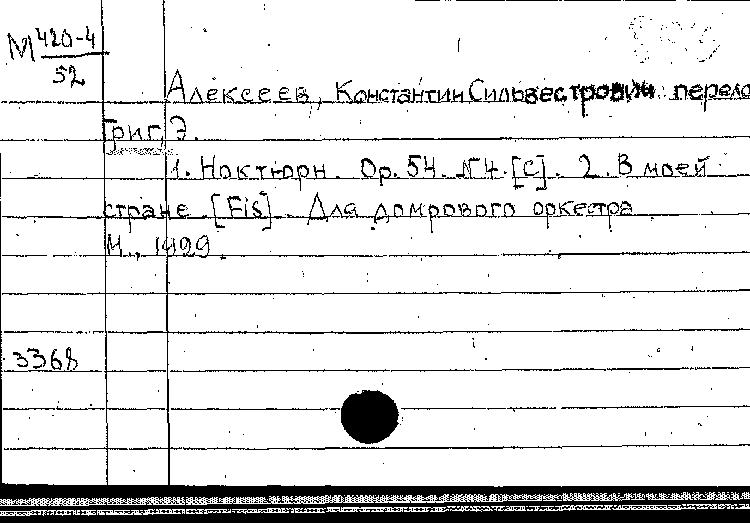 М 420-4
52
Алексеев, Константин Сильвестрович перело
Григ, Э.
1. Ноктюрн. Op. 54. №4. [C]. 2. В моей
стране. [Fis]. Для домрового оркестра
М., 1929.
3368